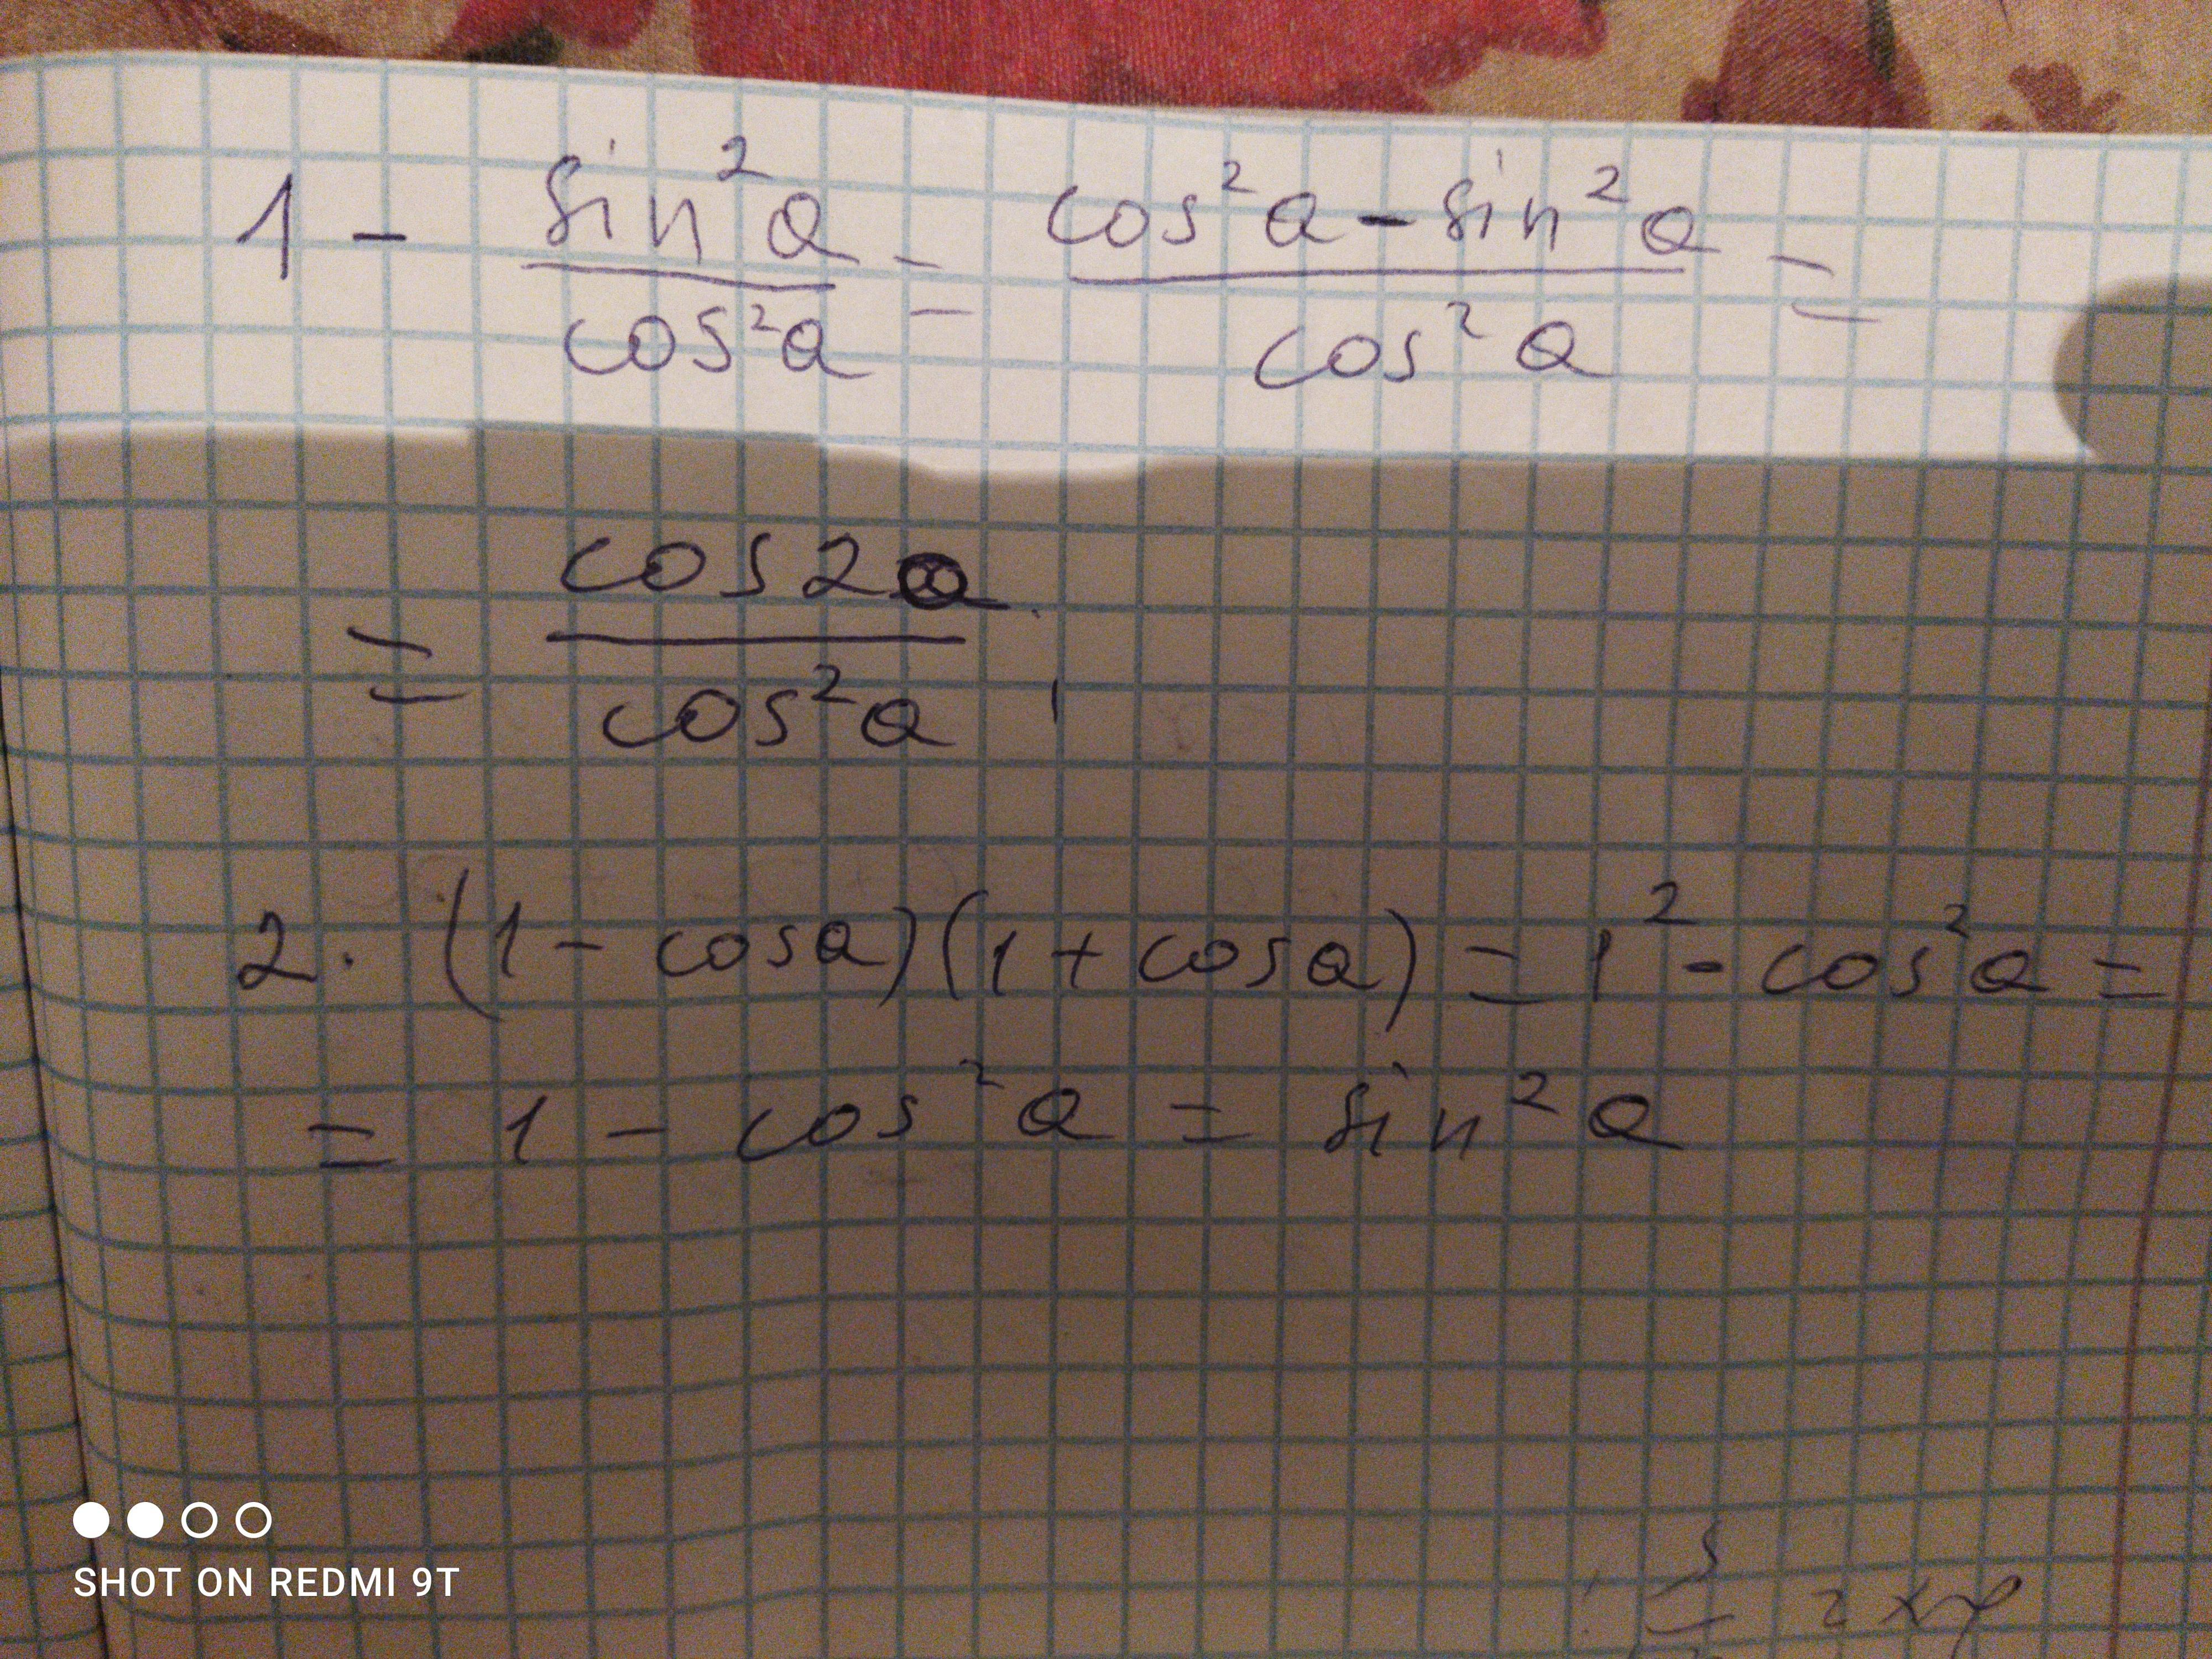 1 - sin²a/cos²a = cos²a - sin²a/cos²a =
= cos2a/cos²a
2. (1 - cosa)(1 + cosa) = 1² - cos²a =
= 1 - cos²a = sin²a
SHOT ON REDMI 9T